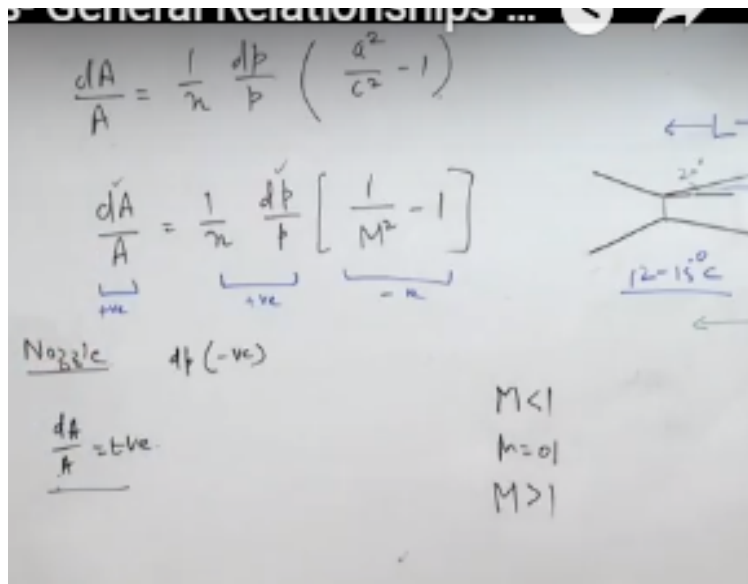 General Relationships ...
dA/A = 1/n dp/p ( a²/c² - 1 )
← L -
dA/A = 1/n dp/p [ 1/M² - 1 ]
20°
+ve +ve - ve
12-15°C
Nozzle dp (-ve)
dA/A = +ve
M<1
M=01
M>1